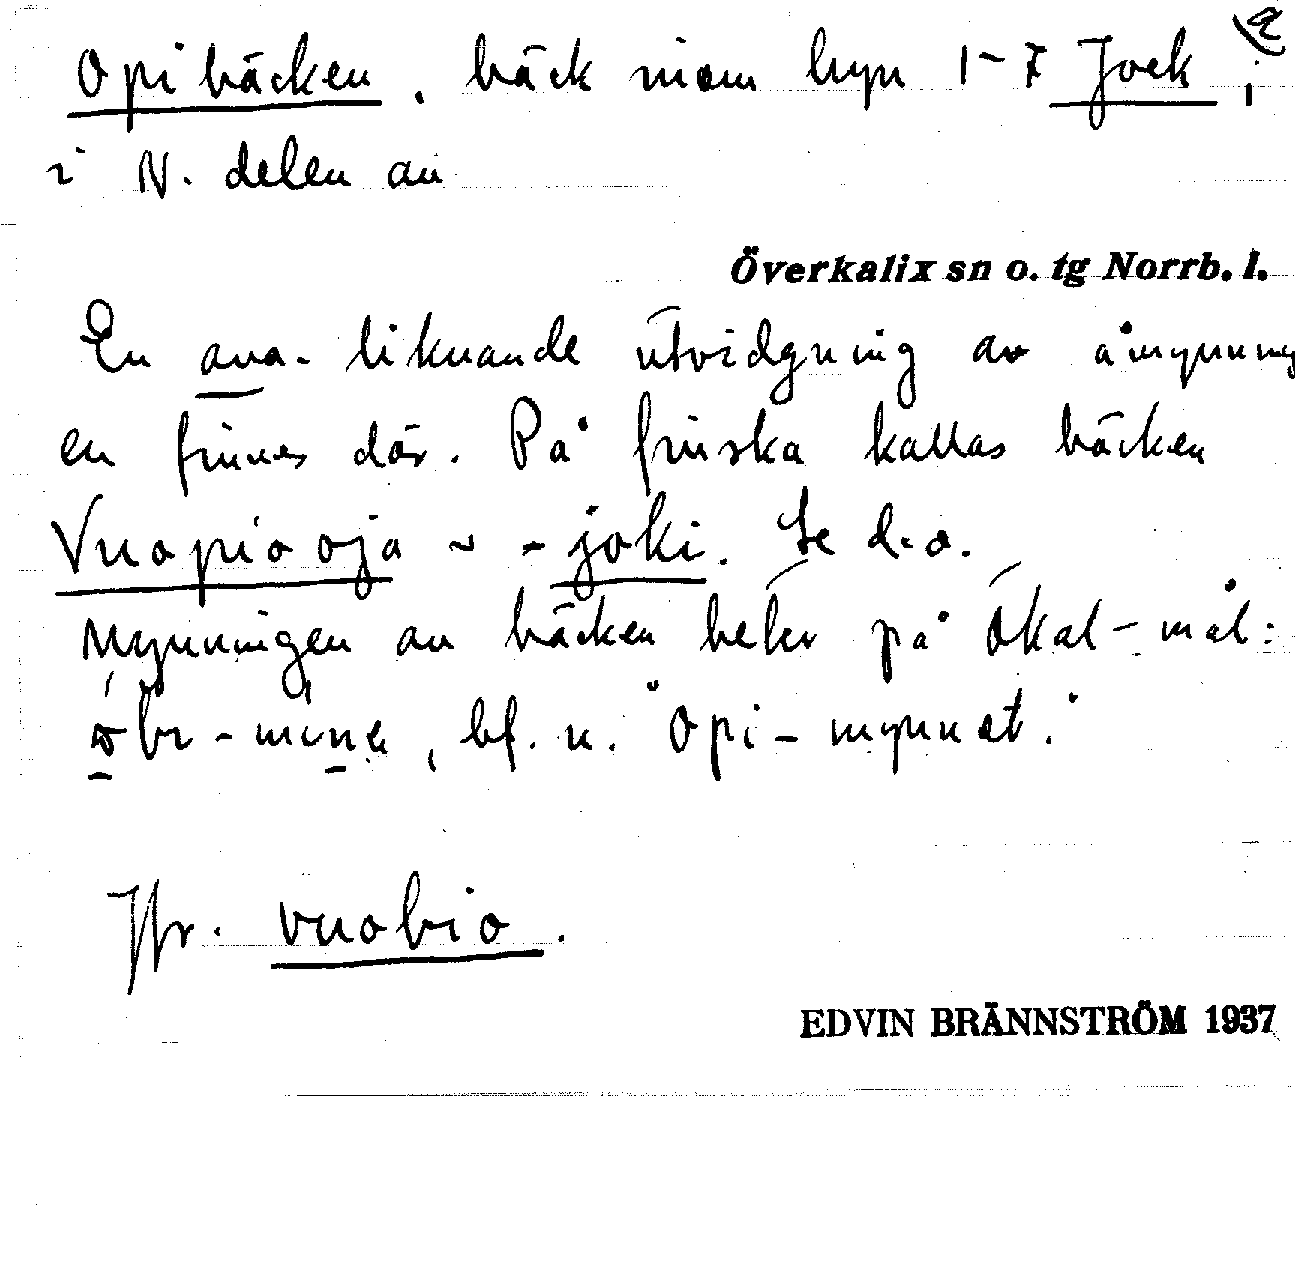 Opibäcken, bäck inom byn 1-7 Jock i
i N. delen av
Överkalix sn o. tg Norrb. l.
En ava-liknande utvidgning av åmynning
en finnes där. På finska kallas bäcken
Vuopiooja ~ -joki. Se d.o.
Mynningen av bäcken heter på Ökal-mål:
bf. n. "Opi-mynnet."
Jfr. vuobio.
EDVIN BRÄNNSTRÖM 1937